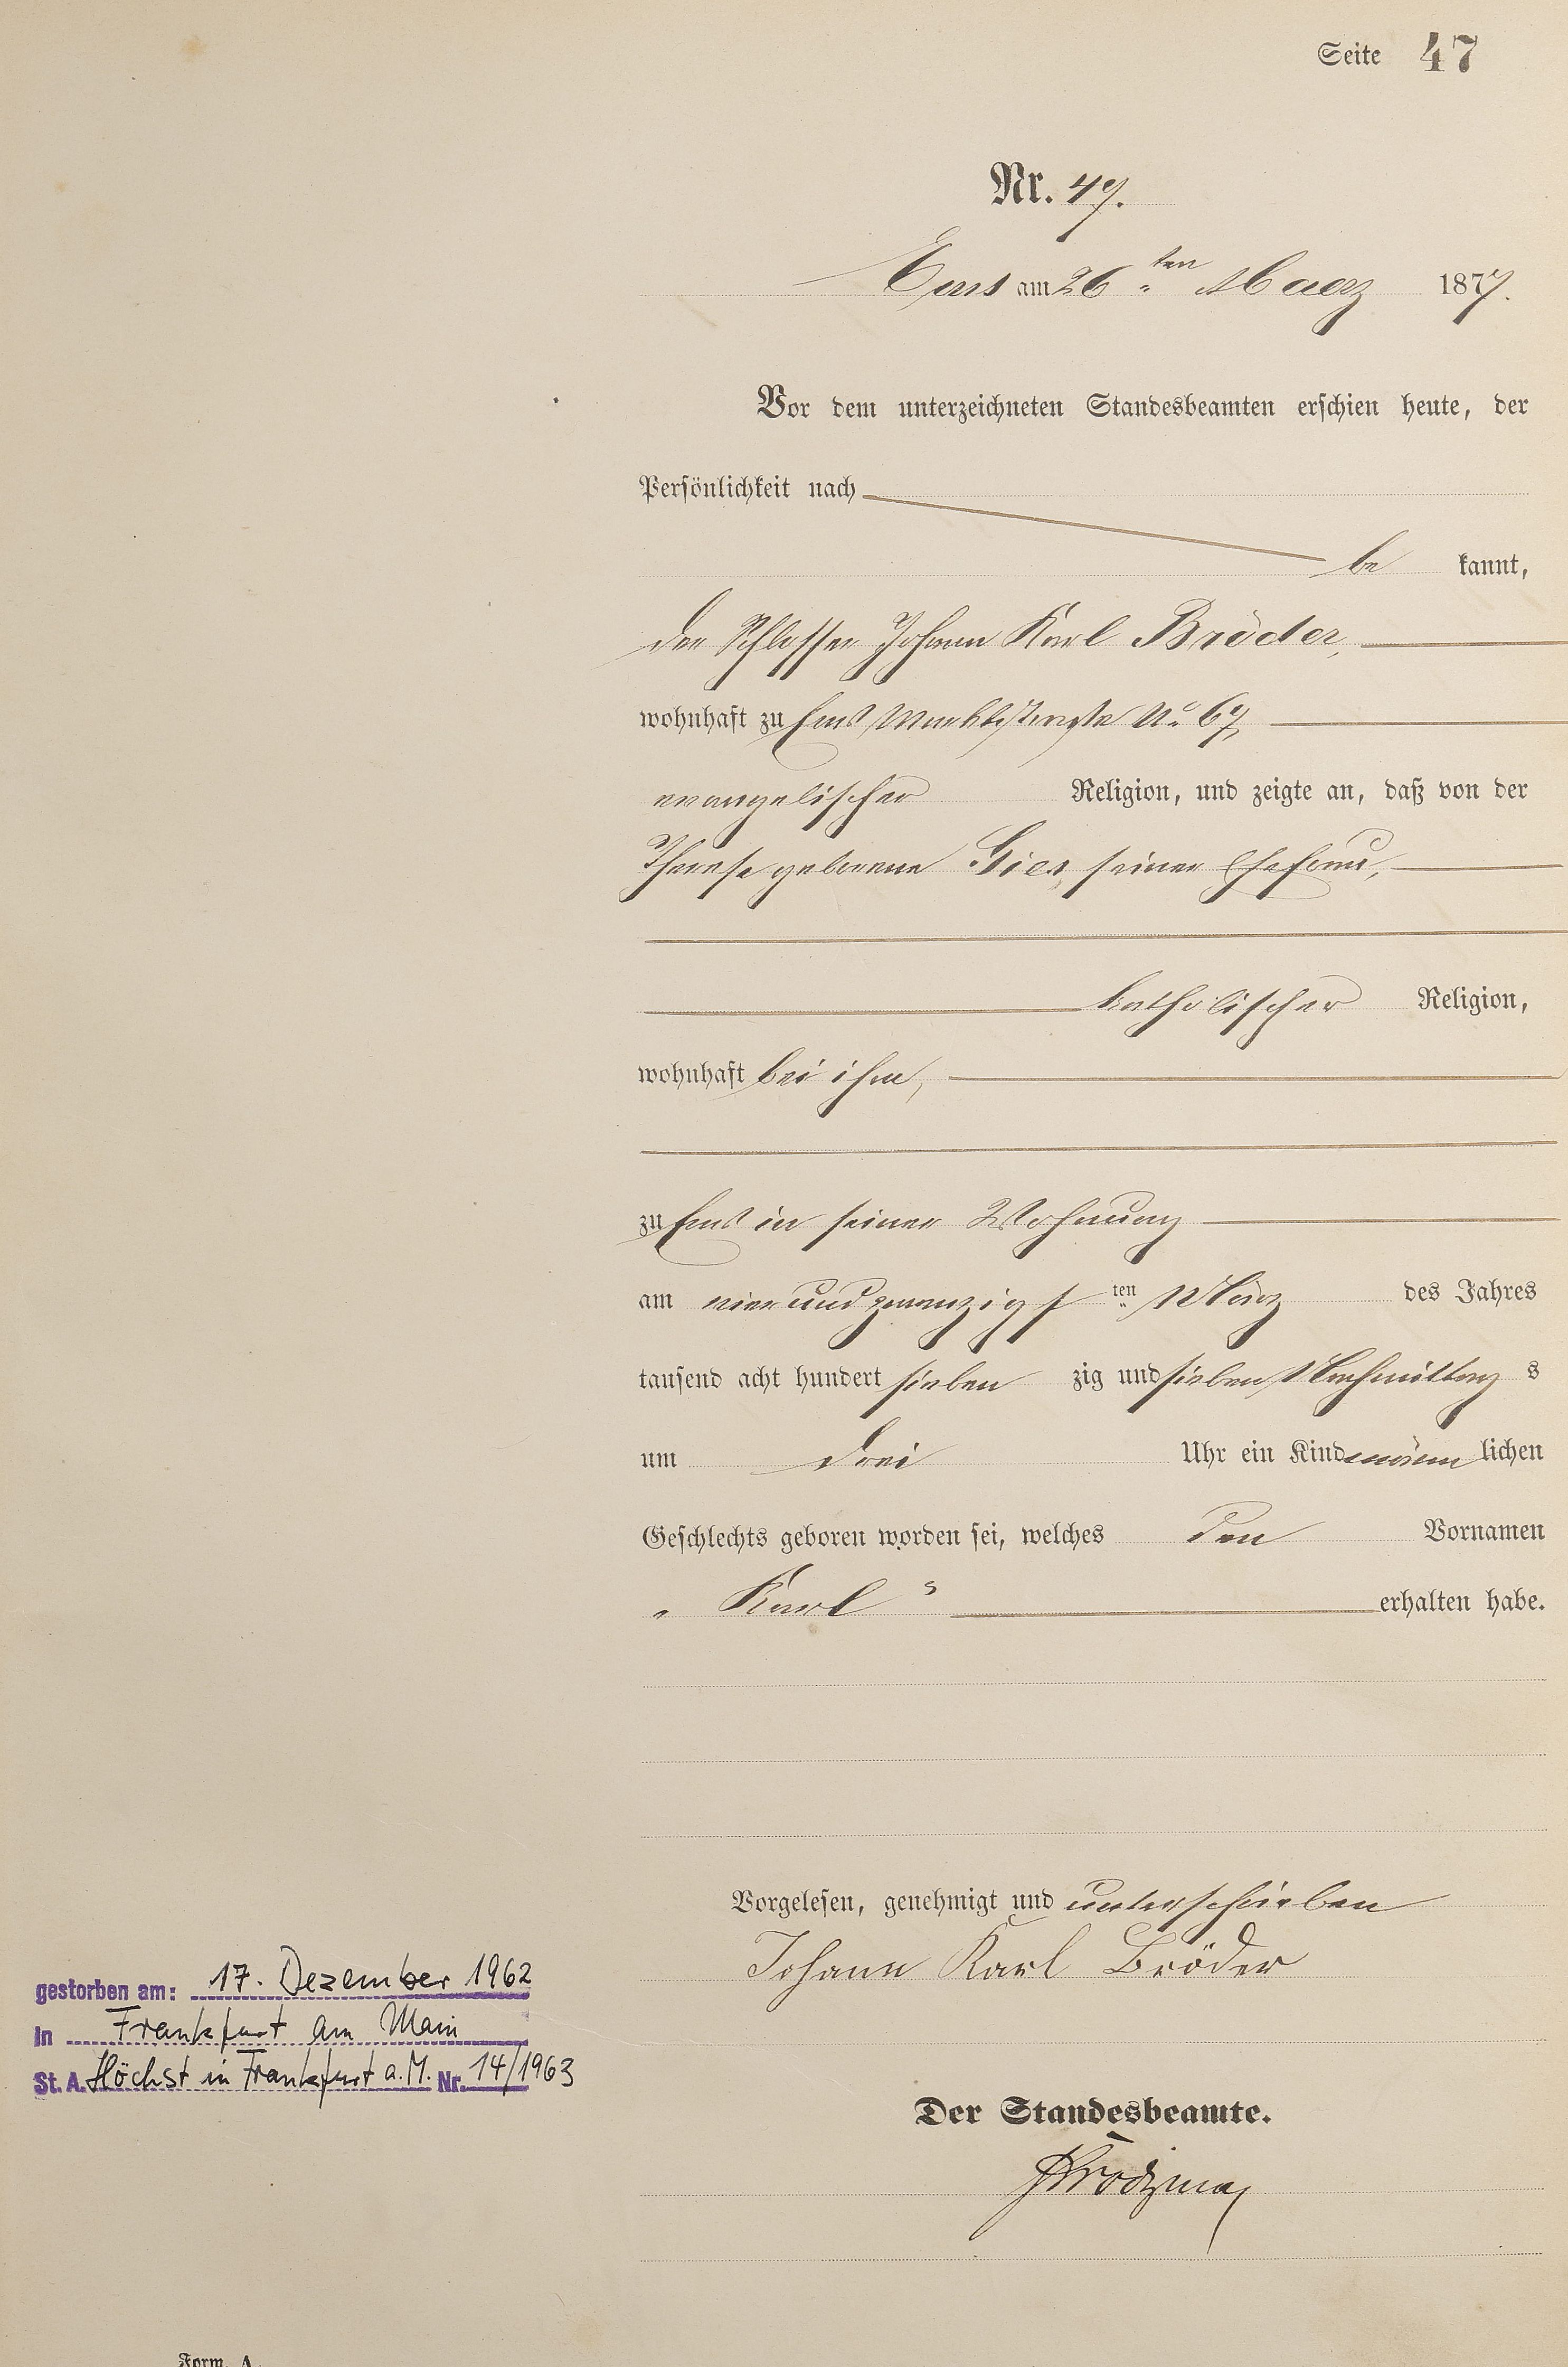 Seite 47
Nr. 47.
Ems am 26ten Maerz 1877.
Vor dem unterzeichneten Standesbeamten erschien heute, der
Persönlichkeit nach
be kannt,
der Schlosser Johann Karl Bröder,
wohnhaft zu Ems No 67,
evangelischer Religion, und zeigte an, daß von der
Therese geborene Gies, seiner Ehefrau,
katholischer Religion,
wohnhaft bei ihm,
zu Ems in seiner Wohnung
am vierundzwanzigsten März des Jahres
tausend acht hundert sieben zig und sieben Nachmittag s
um drei Uhr ein Kind männ lichen
Geschlechts geboren worden sei, welches den Vornamen
„Karl“ erhalten habe.
Vorgelesen, genehmigt und unterschrieben
Johann Karl Bröder
gestorben am: 17. Dezember 1962
in Frankfurt am Main
St. A. Höchst in Frankfurt a. M. Nr. 14/1963
Der Standesbeamte.
Form. A.